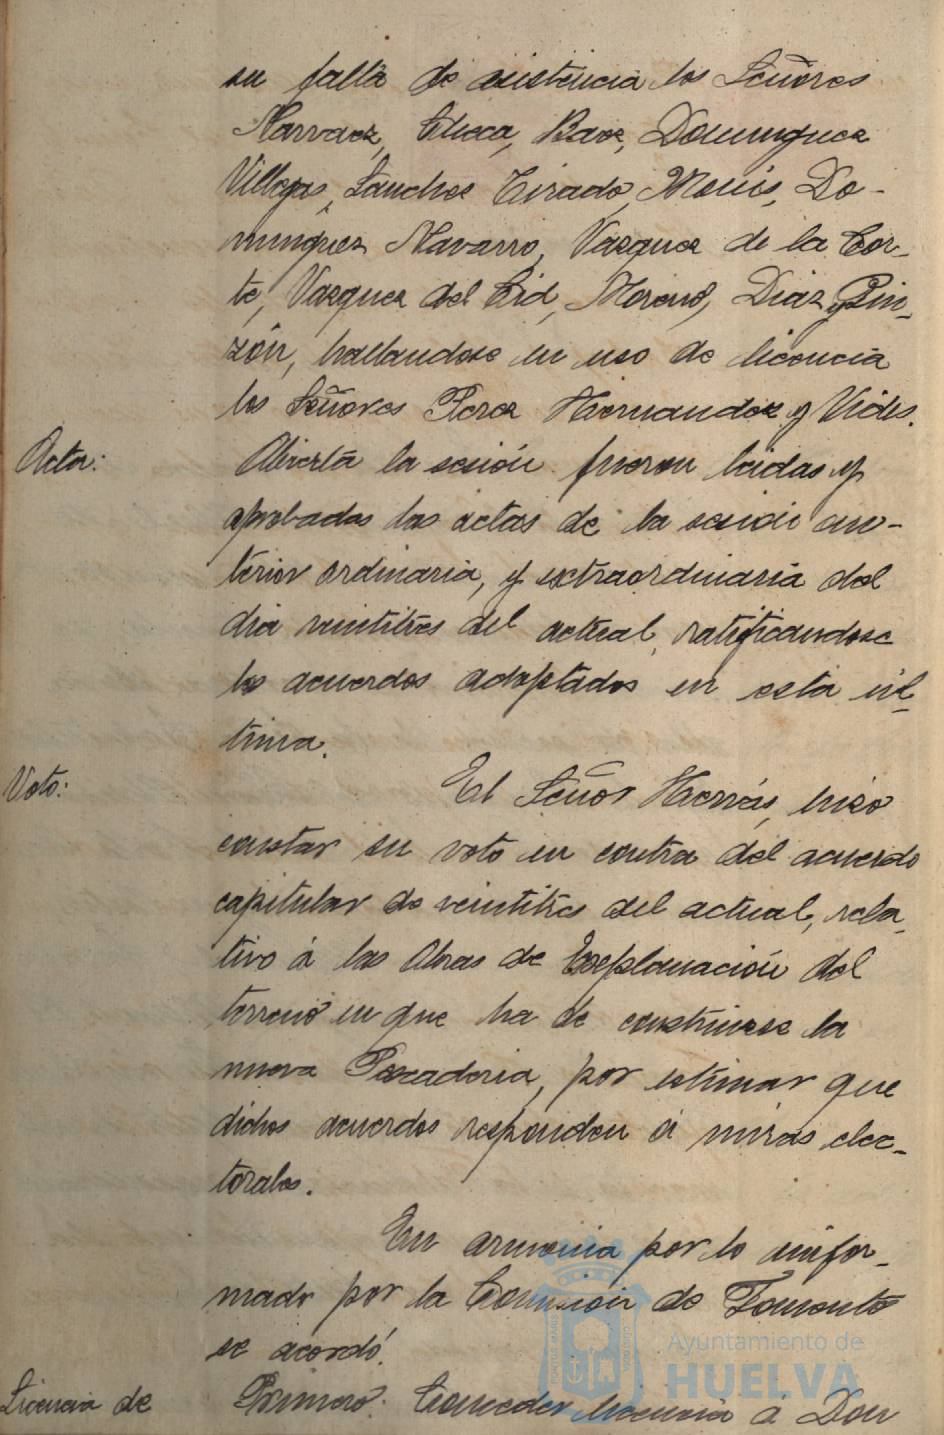 su falta de asistencia los Señores
Narvaez, Checa, Baez, Dominguez
Villegas, Sanchez Tirado, Monis, Do-
minguez Navarro, Vazquez de la Cor-
te, Vazquez del Cid, Moreno, Diaz y Pin-
zón, hallandose en uso de licencia
los Señores Perez Hernandez y Vides.
Acta:
Abierta la sesión fueron leidas y
aprobadas las actas de la sesión an-
terior ordinaria, y extraordinaria del
dia veintitres del actual, ratificandose
los acuerdos adoptados en esta úl-
tima.
Voto:
El Señor Hierrás, hizo
constar su voto en contra del acuerdo
capitular de veintitres del actual, rela-
tivo á las Obras de Explanación del
terreno en que ha de construirse la
nueva Pescaderia, por estimar que
dichos acuerdos responden á miras elec-
torales.
En armonia por lo infor-
mado por la Comisión de Fomento
se acordó.
Licencia de
Primero: Conceder licencia a Don
Ayuntamiento de
HUELVA